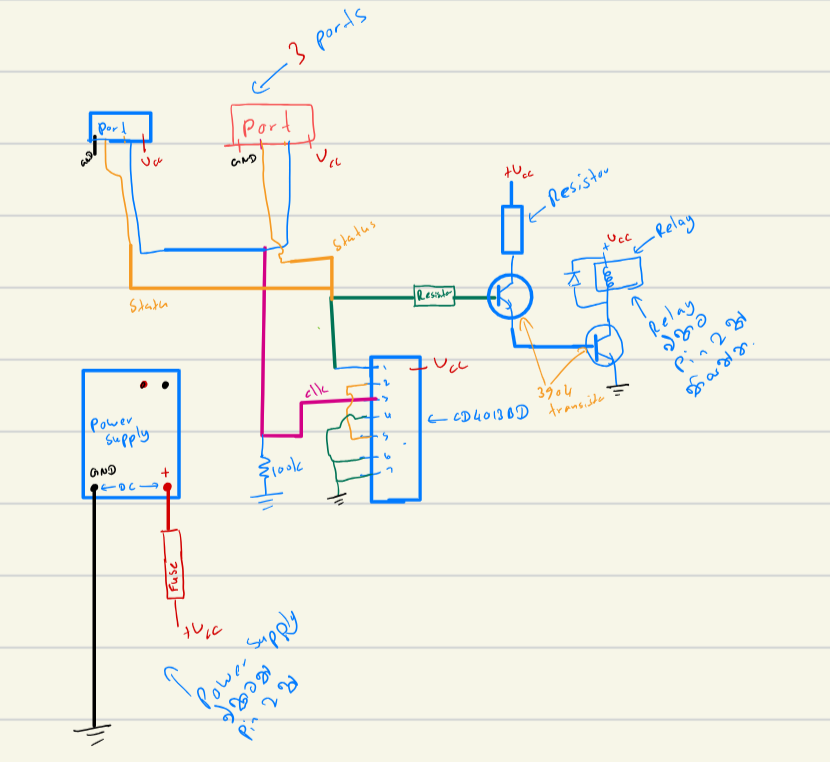 3 ports
Port
GND
Vcc
Port
GND
Vcc
Status
Status
+Vcc
Resistor
+Vcc
Relay
Resistor
Relay
pin 2
3904
transisto
Vcc
1
2
3
4
5
6
7
clk
CD4013BD
100k
Power
supply
GND
+
DC
Fuse
+Vcc
Power supply
pin 2